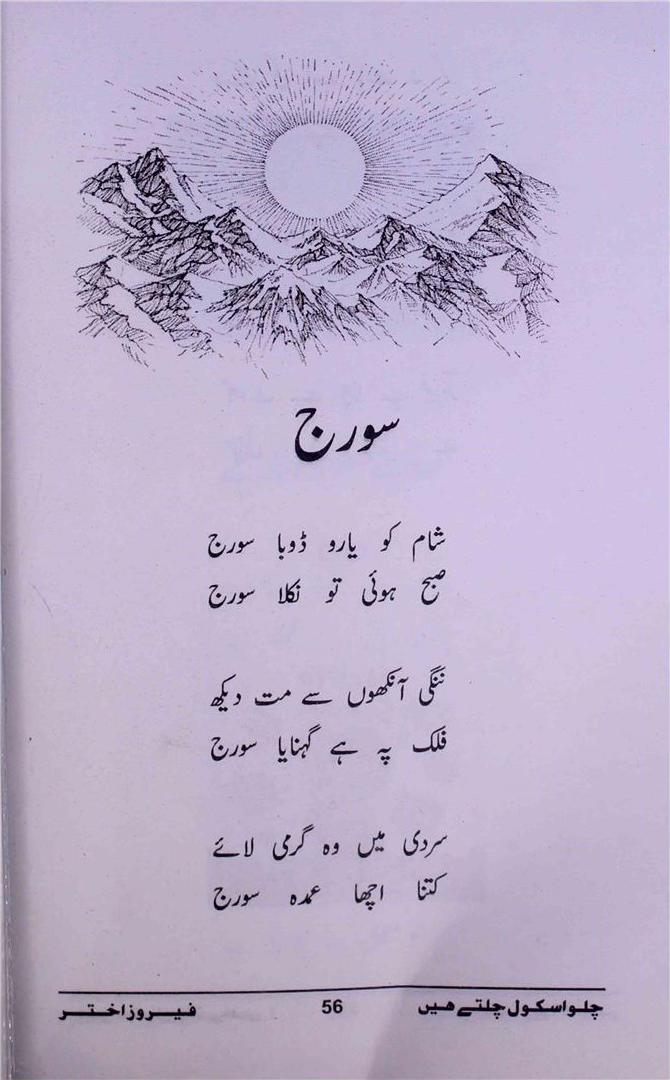 سورج
شام کو یارو ڈوبا سورج
صبح ہوئی تو نکلا سورج
ننگی آنکھوں سے مت دیکھ
فلک پہ ہے گہنایا سورج
سردی میں وہ گرمی لائے
کتنا اچھا عمدہ سورج
چلو اسکول چلتے ہیں 56 فیروز اختر